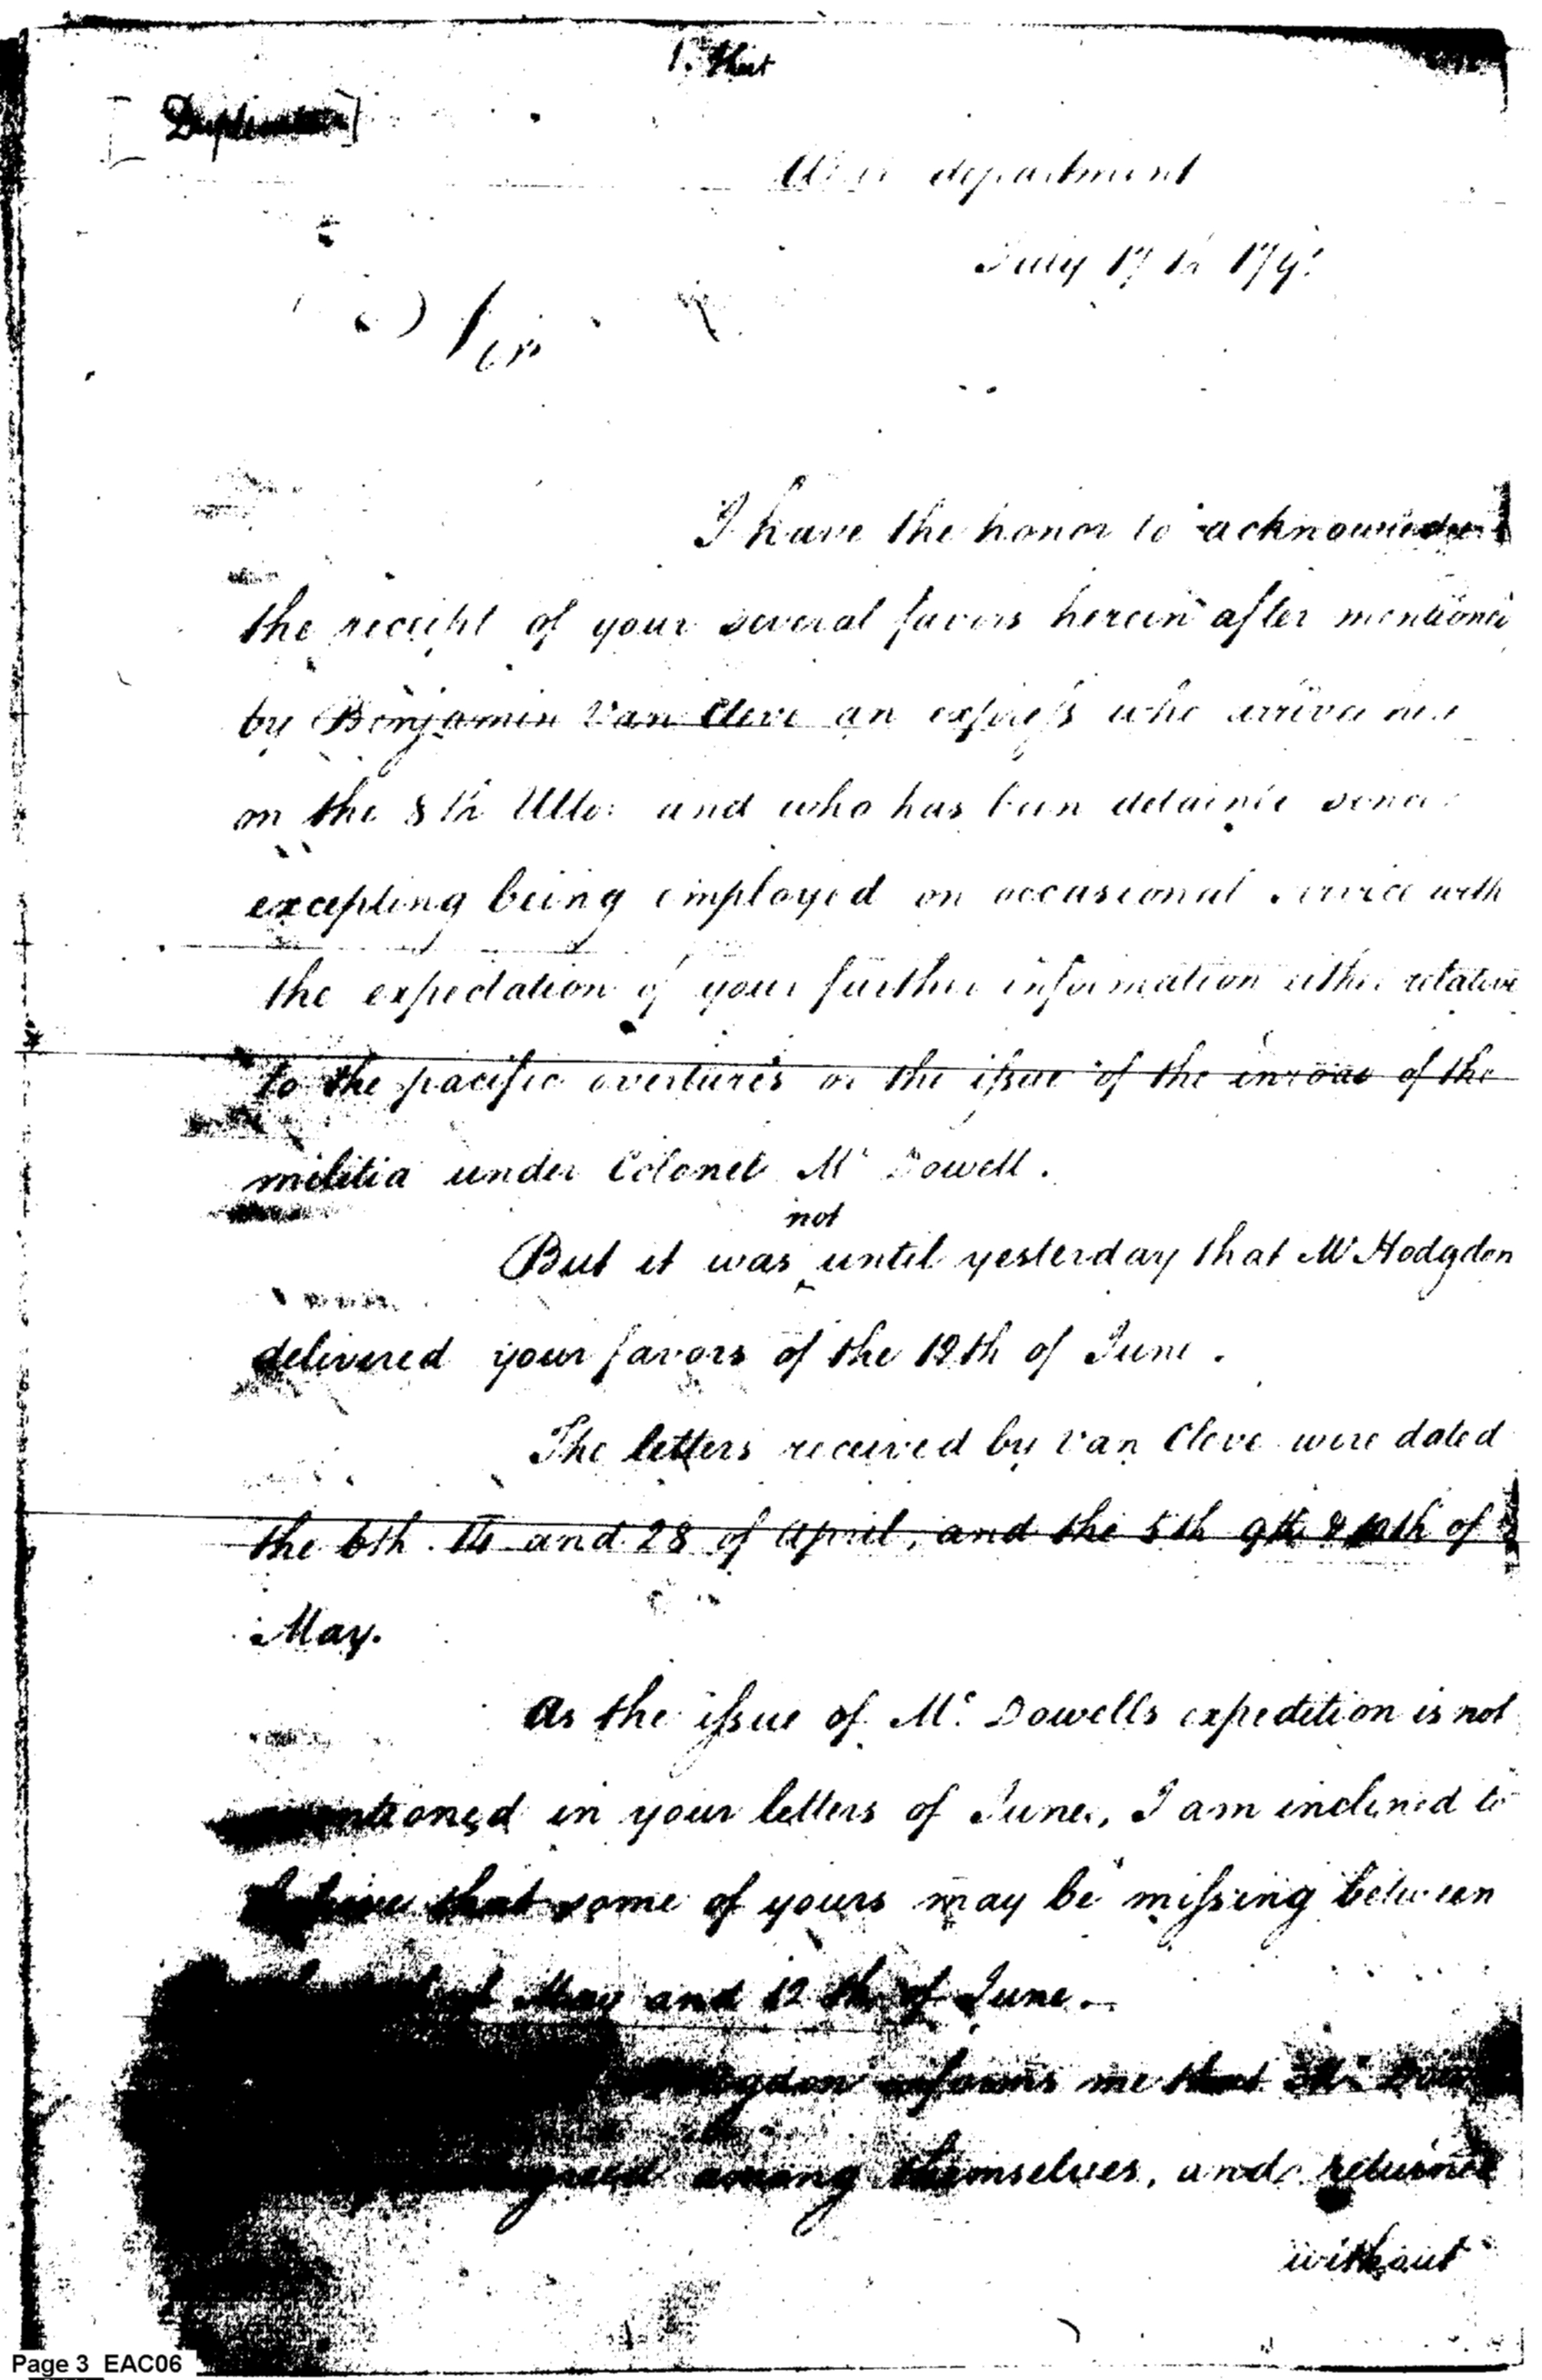 1. that
[Duplicate]
War department
July 17th 179
Sir
I have the honor to acknowledge
the receipt of your several favors herein after mentioned
by Benjamin Van Cleve an express who arrived here
on the 8th Ulto: and who has been detained since
excepting being employed on occasional service with
the expectation of your further information either relative
to the pacific overtures or the issue of the inroad of the
militia under Colonel Mc Dowell.
not
But it was until yesterday that Mr Hodgdon
delivered your favors of the 12th of June.
The letters received by Van Cleve were dated
the 6th. and 28 of April, and the 5th 9th & 10th of
May.
As the issue of Mc. Dowells expedition is not
mentioned in your letters of June, I am inclined to
believe that some of yours may be missing between
May and 12th of June.
informs me that Mc
among themselves, and returned
without
Page 3 EAC06